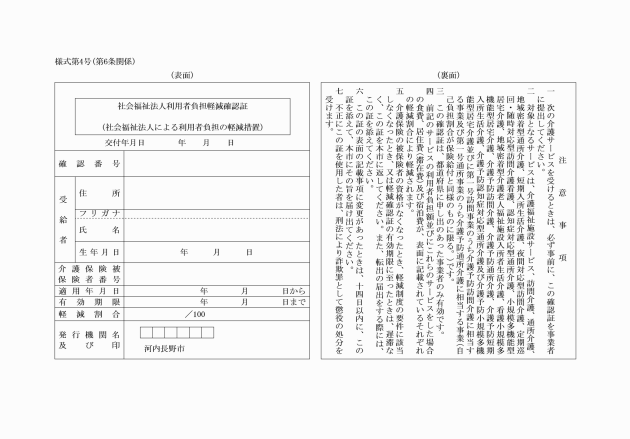 様式第4号(第6条関係)
(表面)
社会福祉法人利用者負担軽減確認証
(社会福祉法人による利用者負担の軽減措置)
交付年月日 年 月 日
確認番号
受給者
住所
フリガナ
氏名
生年月日 年 月 日
介護保険被
保険者番号
適用年月日 年 月 日から
有効期限 年 月 日まで
軽減割合 /100
発行機関名
及び印
河内長野市
(裏面)
注意事項
一 次の介護サービスを受けるときは、必ず事前に、この確認証を事業者
に提示してください。
二 対象となるサービスは、介護福祉施設サービス、訪問介護、通所介護、
地域密着型通所介護、短期入所生活介護、夜間対応型訪問介護、定期巡
回・随時対応型訪問介護看護、認知症対応型通所介護、小規模多機能型
居宅介護、地域密着型介護老人福祉施設入所者生活介護、看護小規模多
機能型居宅介護、介護予防訪問介護、介護予防通所介護、介護予防短期
入所生活介護、介護予防認知症対応型通所介護及び介護予防小規模多機
能型居宅介護並びに第一号訪問事業のうち介護予防訪問介護に相当す
る事業及び第一号通所事業のうち介護予防通所介護に相当する事業(自
己負担割合が保険給付と同様のものに限る。)です。
三 この確認証は、都道府県に申し出のあった事業者のみ有効です。
四 前記のサービスの利用者負担額並びにこれらのサービスをした場合
の食費、居住費(滞在費)及び宿泊費が、表面に記載されているそれぞれ
の軽減割合により軽減されます。
五 介護保険の被保険者の資格がなくなったとき、軽減制度の要件に該当
しなくなったとき、又は軽減確認証の有効期限に至ったときは、遅滞な
く、この証を本市に返してください。また、転出の届出をする際には、
この証を添えてください。
六 この証の表面の記載事項に変更があったときは、十四日以内に、この
証を添えて、本市にその旨を届け出てください。
七 不正にこの証を使用した者は、刑法により詐欺罪として懲役の処分を
受けます。